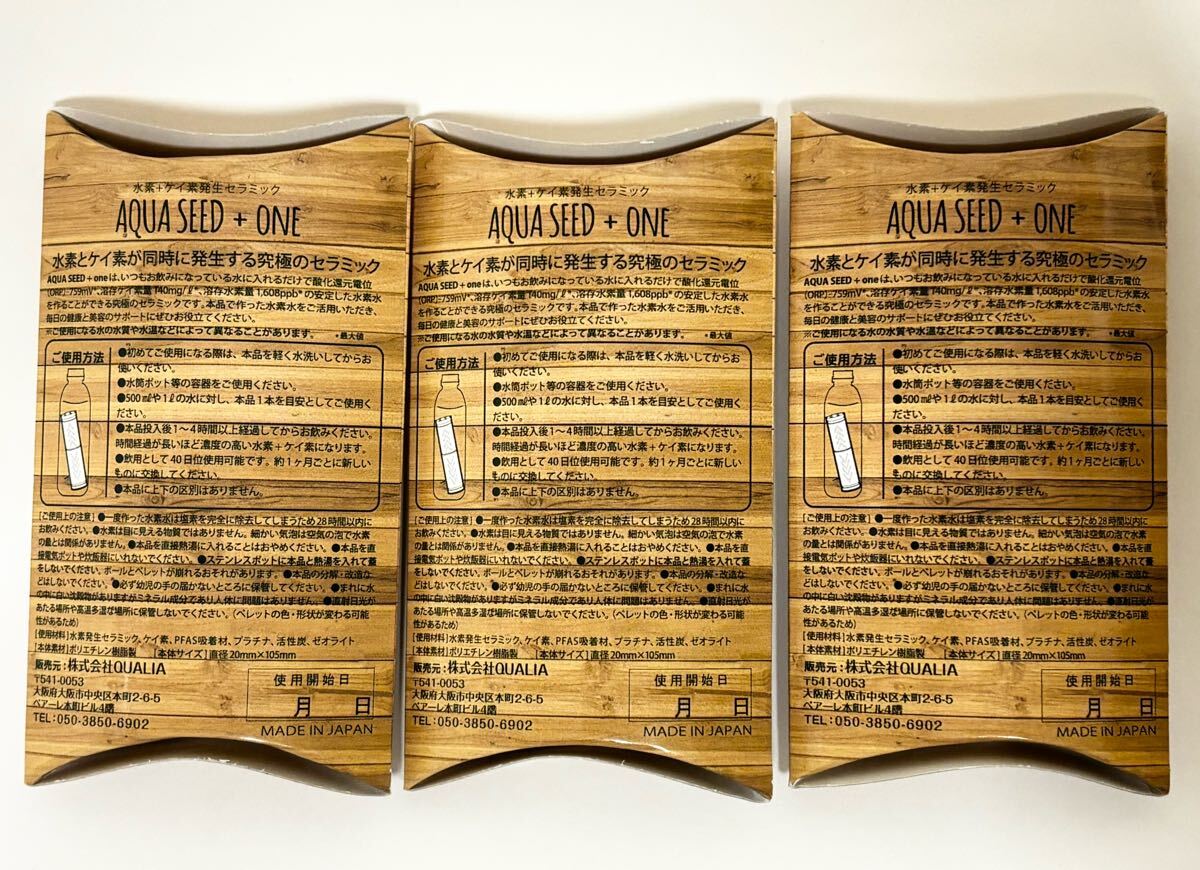 水素+ケイ素発生セラミック
AQUA SEED + ONE
水素とケイ素が同時に発生する究極のセラミック
AQUA SEED + oneは、いつもお飲みになっている水に入れるだけで酸化還元電位
(ORP)-759mV*、溶存ケイ素量140mg/ℓ*、溶存水素量1,608ppb*の安定した水素水
を作ることができる究極のセラミックです。本品で作った水素水をご活用いただき、
毎日の健康と美容のサポートにぜひお役立てください。
※ご使用になる水の水質や水温などによって異なることがあります。 *最大値
ご使用方法
●初めてご使用になる際は、本品を軽く水洗いしてからお
使いください。
●水筒ポット等の容器をご使用ください。
●500㎖や1ℓの水に対し、本品1本を目安としてご使用く
ださい。
●本品投入後1〜4時間以上経過してからお飲みください。
時間経過が長いほど濃度の高い水素+ケイ素になります。
●飲用として40日位使用可能です。約1ヶ月ごとに新しい
ものに交換してください。
●本品に上下の区別はありません。
[ご使用上の注意] ●一度作った水素水は塩素を完全に除去してしまうため28時間以内に
お飲みください。●水素は目に見える物質ではありません。細かい気泡は空気の泡で水素
の量とは関係がありません。●本品を直接熱湯に入れることはおやめください。●本品を直
接電気ポットや炊飯器にいれないでください。●ステンレスポットに本品と熱湯を入れて蓋
をしないでください。ボールとペレットが崩れるおそれがあります。●本品の分解・改造な
どはしないでください。●必ず幼児の手の届かないところに保管してください。●まれに水
の中に白い沈殿物がありますがミネラル成分であり人体に問題はありません。●直射日光が
あたる場所や高温多湿な場所に保管しないでください。(ペレットの色・形状が変わる可能
性があるため)
[使用材料] 水素発生セラミック、ケイ素、PFAS吸着材、プラチナ、活性炭、ゼオライト
[本体素材] ポリエチレン樹脂製 [本体サイズ] 直径20mm×105mm
販売元:株式会社QUALIA
〒541-0053
大阪府大阪市中央区本町2-6-5
ベアーレ本町ビル4階
TEL:050-3850-6902
使用開始日
月 日
MADE IN JAPAN
水素+ケイ素発生セラミック
AQUA SEED + ONE
水素とケイ素が同時に発生する究極のセラミック
AQUA SEED + oneは、いつもお飲みになっている水に入れるだけで酸化還元電位
(ORP)-759mV*、溶存ケイ素量140mg/ℓ*、溶存水素量1,608ppb*の安定した水素水
を作ることができる究極のセラミックです。本品で作った水素水をご活用いただき、
毎日の健康と美容のサポートにぜひお役立てください。
※ご使用になる水の水質や水温などによって異なることがあります。 *最大値
ご使用方法
●初めてご使用になる際は、本品を軽く水洗いしてからお
使いください。
●水筒ポット等の容器をご使用ください。
●500㎖や1ℓの水に対し、本品1本を目安としてご使用く
ださい。
●本品投入後1〜4時間以上経過してからお飲みください。
時間経過が長いほど濃度の高い水素+ケイ素になります。
●飲用として40日位使用可能です。約1ヶ月ごとに新しい
ものに交換してください。
●本品に上下の区別はありません。
[ご使用上の注意] ●一度作った水素水は塩素を完全に除去してしまうため28時間以内に
お飲みください。●水素は目に見える物質ではありません。細かい気泡は空気の泡で水素
の量とは関係がありません。●本品を直接熱湯に入れることはおやめください。●本品を直
接電気ポットや炊飯器にいれないでください。●ステンレスポットに本品と熱湯を入れて蓋
をしないでください。ボールとペレットが崩れるおそれがあります。●本品の分解・改造な
どはしないでください。●必ず幼児の手の届かないところに保管してください。●まれに水
の中に白い沈殿物がありますがミネラル成分であり人体に問題はありません。●直射日光が
あたる場所や高温多湿な場所に保管しないでください。(ペレットの色・形状が変わる可能
性があるため)
[使用材料] 水素発生セラミック、ケイ素、PFAS吸着材、プラチナ、活性炭、ゼオライト
[本体素材] ポリエチレン樹脂製 [本体サイズ] 直径20mm×105mm
販売元:株式会社QUALIA
〒541-0053
大阪府大阪市中央区本町2-6-5
ベアーレ本町ビル4階
TEL:050-3850-6902
使用開始日
月 日
MADE IN JAPAN
水素+ケイ素発生セラミック
AQUA SEED + ONE
水素とケイ素が同時に発生する究極のセラミック
AQUA SEED + oneは、いつもお飲みになっている水に入れるだけで酸化還元電位
(ORP)-759mV*、溶存ケイ素量140mg/ℓ*、溶存水素量1,608ppb*の安定した水素水
を作ることができる究極のセラミックです。本品で作った水素水をご活用いただき、
毎日の健康と美容のサポートにぜひお役立てください。
※ご使用になる水の水質や水温などによって異なることがあります。 *最大値
ご使用方法
●初めてご使用になる際は、本品を軽く水洗いしてからお
使いください。
●水筒ポット等の容器をご使用ください。
●500㎖や1ℓの水に対し、本品1本を目安としてご使用く
ださい。
●本品投入後1〜4時間以上経過してからお飲みください。
時間経過が長いほど濃度の高い水素+ケイ素になります。
●飲用として40日位使用可能です。約1ヶ月ごとに新しい
ものに交換してください。
●本品に上下の区別はありません。
[ご使用上の注意] ●一度作った水素水は塩素を完全に除去してしまうため28時間以内に
お飲みください。●水素は目に見える物質ではありません。細かい気泡は空気の泡で水素
の量とは関係がありません。●本品を直接熱湯に入れることはおやめください。●本品を直
接電気ポットや炊飯器にいれないでください。●ステンレスポットに本品と熱湯を入れて蓋
をしないでください。ボールとペレットが崩れるおそれがあります。●本品の分解・改造な
どはしないでください。●必ず幼児の手の届かないところに保管してください。●まれに水
の中に白い沈殿物がありますがミネラル成分であり人体に問題はありません。●直射日光が
あたる場所や高温多湿な場所に保管しないでください。(ペレットの色・形状が変わる可能
性があるため)
[使用材料] 水素発生セラミック、ケイ素、PFAS吸着材、プラチナ、活性炭、ゼオライト
[本体素材] ポリエチレン樹脂製 [本体サイズ] 直径20mm×105mm
販売元:株式会社QUALIA
〒541-0053
大阪府大阪市中央区本町2-6-5
ベアーレ本町ビル4階
TEL:050-3850-6902
使用開始日
月 日
MADE IN JAPAN